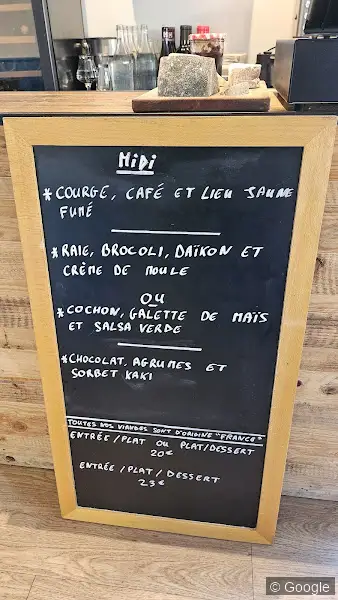 MiDi
* COURGE, CAFÉ ET LIEU JAUNE
FUMÉ
* RAIE, BROCOLI, DAÏKON ET
CRÈME DE MOULE
OU
* COCHON, GALETTE DE MAÏS
ET SALSA VERDE
* CHOCOLAT, AGRUMES ET
SORBET KAKI
TOUTES NOS VIANDES SONT D'ORIGINE "FRANCE"
ENTRÉE/PLAT OU PLAT/DESSERT
20€
ENTRÉE/PLAT/DESSERT
23€
© Google